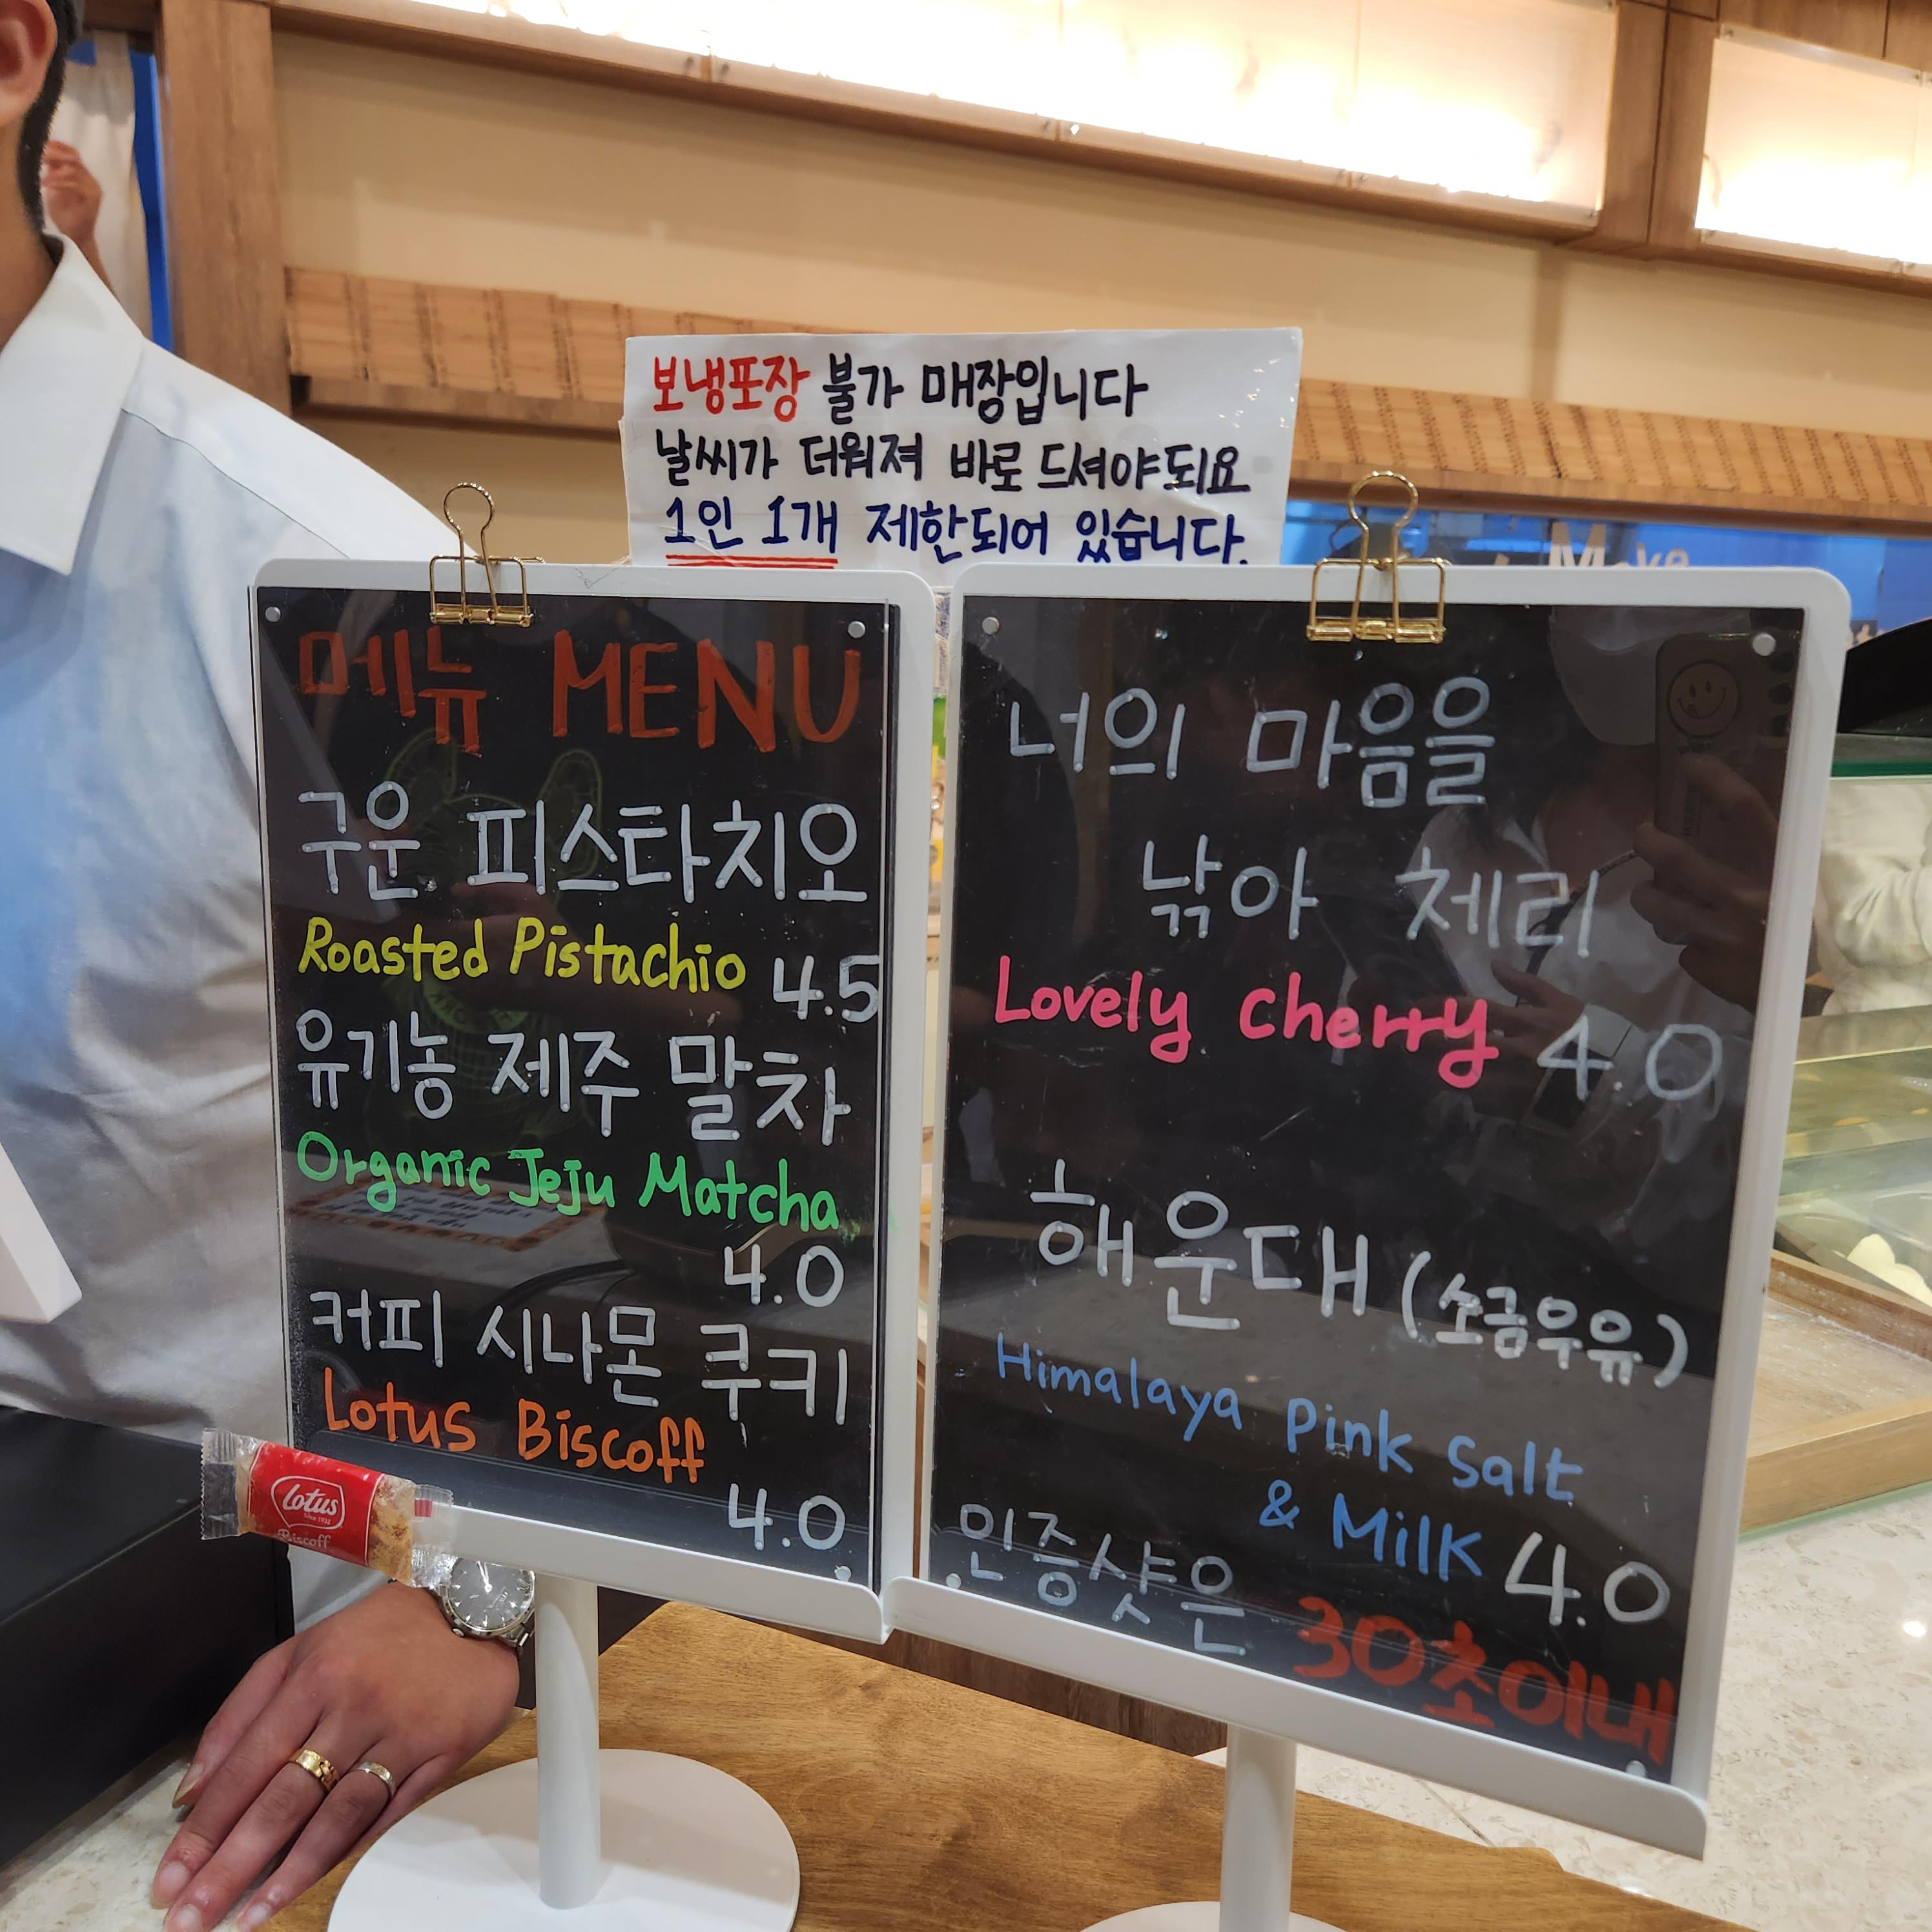 보냉포장 불가 매장입니다
날씨가 더워져 바로 드셔야되요
1인 1개 제한되어 있습니다.
메뉴 MENU
구운 피스타치오
Roasted Pistachio 4.5
유기농 제주 말차
Organic Jeju Matcha
4.0
커피 시나몬 쿠키
Lotus Biscoff
4.0
Lotus
Since 1932
Biscoff
너의 마음을
낚아 체리
Lovely Cherry 4.0
해운대 (소금우유)
Himalaya Pink Salt
& Milk 4.0
인증샷은 30초이내